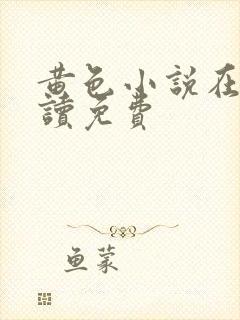 黄色小说在
讀免費
鱼蒙